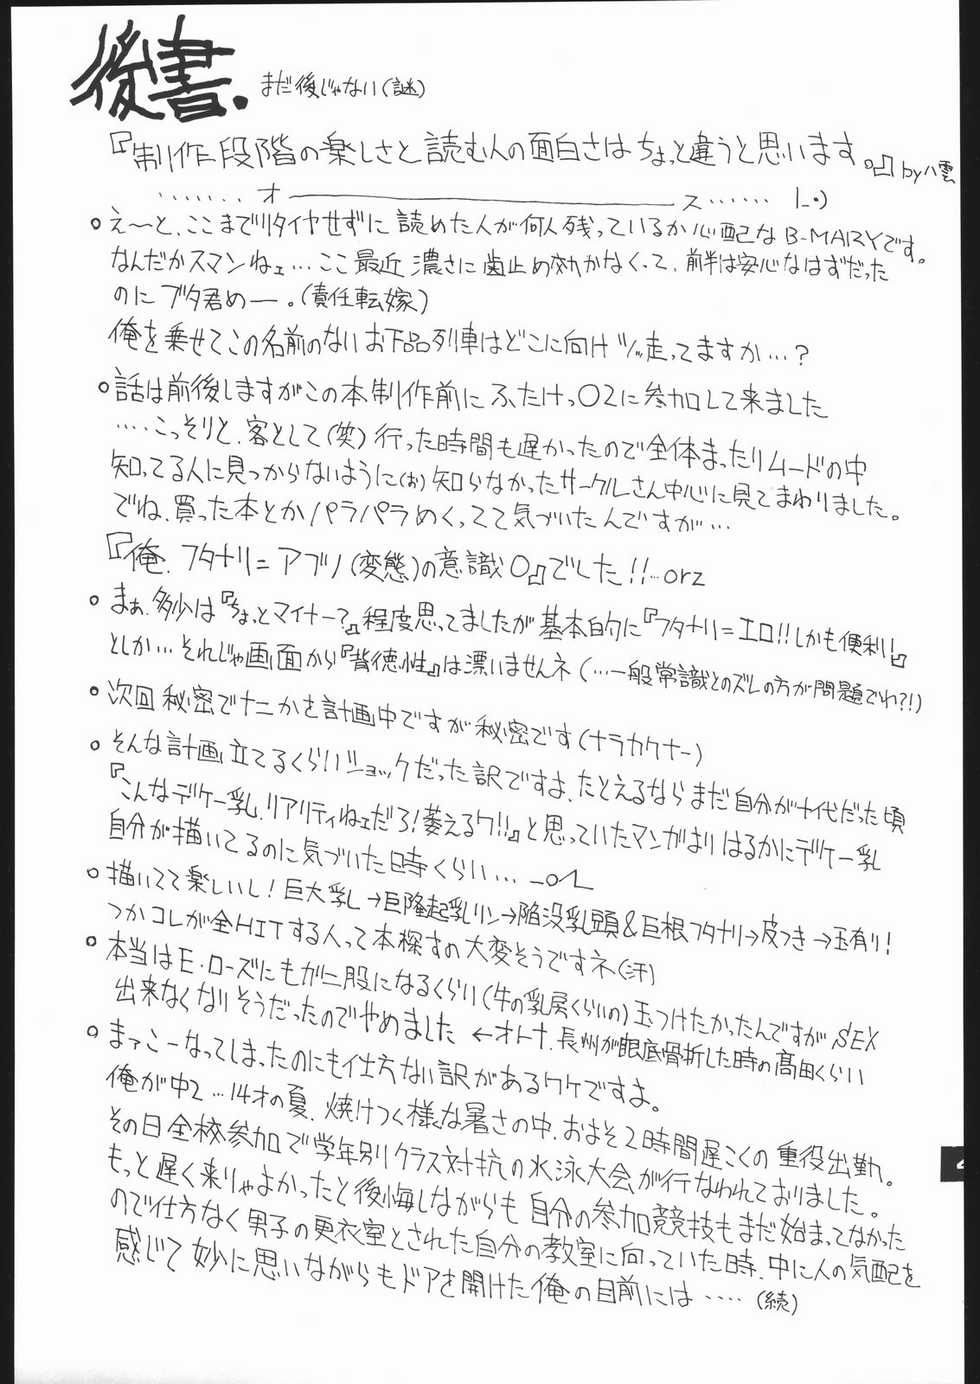 後書. まだ後じゃない(謎)
『制作段階の楽しさと読む人の面白さはちょっと違うと思います。』by八雲
……… オ――――――――――ス…… |_・)
○ え〜と、ここまでリタイヤせずに読めた人が何人残っているか心配なB-MARYです。
なんだかスマンねェ…ここ最近濃さに歯止め効かなくって、前半は安心なはずだった
のにブタ君めー。(責任転嫁)
俺を乗せてこの名前のないお下品列車はどこに向け走ってますか…?
○ 話は前後しますがこの本制作前にふたけっ02に参加して来ました
‥‥こっそりと、客として(笑)行った時間も遅かったので全体まったりムードの中
知ってる人に見つからないように(お)知らなかったサークルさん中心に見てまわりました。
でね、買った本とかパラパラめくってて気づいたんですが…
『俺、フタナリ=アブノ(変態)の意識0』でした!!…orz
○ まぁ、多少は『ちょっとマイナー?』程度思ってましたが基本的に『フタナリ=エロ!!しかも便利!』
としか…それじゃ画面から『背徳性』は漂いませんネ(…一般常識とのズレの方が問題でわ?!)
○ 次回秘密でナニかを計画中ですが秘密です(ナラカクナー)
○ そんな計画立てるくらいショックだった訳ですよ、たとえるならまだ自分が十代だった頃
『こんなデケー乳、リアリティねェだろ!萎えるワ!!』と思っていたマンガよりはるかにデケー乳
自分が描いてるのに気づいた時くらい…_o乙
○ 描いてて楽しいし!巨大乳→巨隆起乳リン→陥没乳頭&巨根フタナリ→皮つき→玉有り!
つかコレが全HITする人って本探すの大変そうですネ(汗)
○ 本当はE・ローズにもが二股になるくらい(牛の乳房くらいの)玉つけたかったんですがSEX
出来なくなりそうだったのでやめました ←オトナ、長州が眼底骨折した時の髙田くらい
○ まァこーなってしまったのにも仕方ない訳があるワケですよ。
俺が中2…14才の夏、焼けつく様な暑さの中、およそ2時間遅こくの重役出勤。
その日全校参加で学年別クラス対抗の水泳大会が行なわれておりました。
もっと遅く来りゃよかったと後悔しながらも自分の参加競技もまだ始まってなかった
ので仕方なく男子の更衣室とされた自分の教室に向っていた時、中に人の気配を
感じて妙に思いながらもドアを開けた俺の目前には‥‥(続)